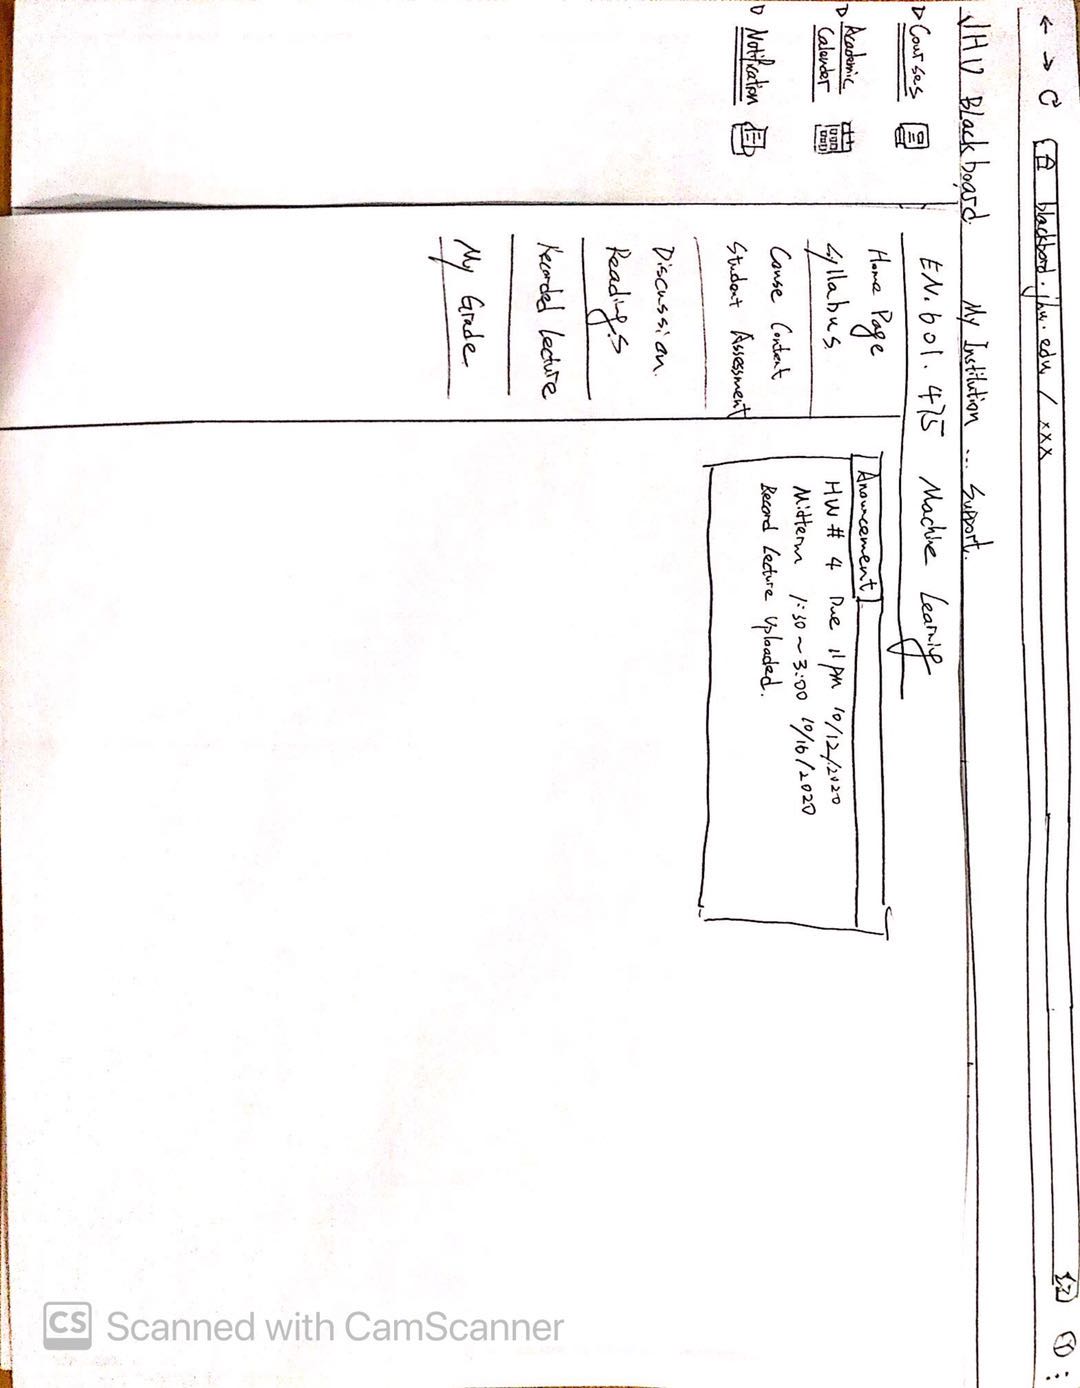 blackbord.jhu.edu/xxx
JHU Blackboard My Institution ... Support.
Courses
Academic
Calender
Notification
EN.601.475 Machine Learning
Home Page
Syllabus
Course Content
Student Assessment
Discussion.
Readings
Recorded Lecture
My Grade
Anouncement
HW # 4 Due 11pm 10/12/2020
Midterm 1:30~3:00 10/16/2020
Record Lecture Uploaded.
CS Scanned with CamScanner